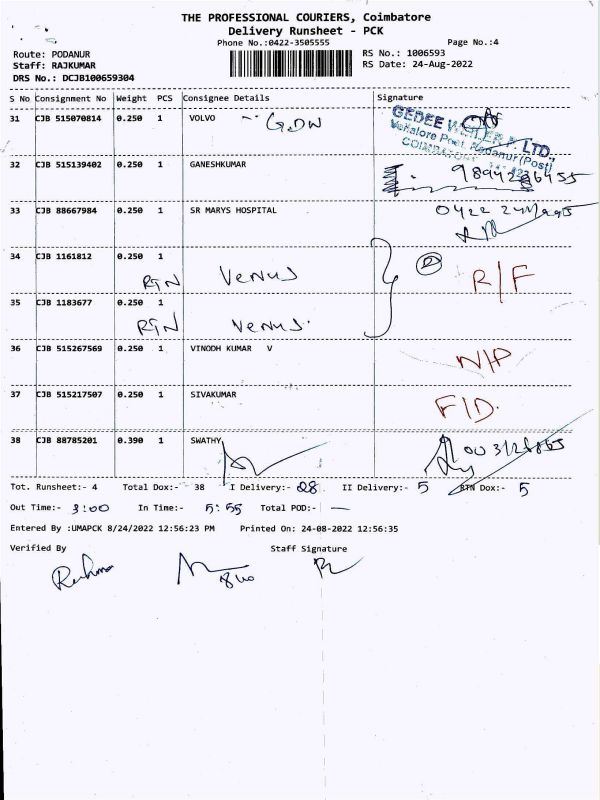 THE PROFESSIONAL COURIERS, Coimbatore
Delivery Runsheet - PCK
Phone No.:0422-3505555 Page No.:4
Route: PODANUR RS No.: 1006593
Staff: RAJKUMAR RS Date: 24-Aug-2022
DRS No.: DCJB100659304
S No Consignment No Weight PCS Consignee Details Signature
31 CJB 515070814 0.250 1 VOLVO GEDW
GEDEE WEILER P LTD.,
COIMBATORE
32 CJB 515139402 0.250 1 GANESHKUMAR
33 CJB 88667984 0.250 1 SR MARYS HOSPITAL 0422
34 CJB 1161812 0.250 1
RTN Venus R/F
35 CJB 1183677 0.250 1
RTN Venus.
36 CJB 515267569 0.250 1 VINODH KUMAR V N/P
37 CJB 515217507 0.250 1 SIVAKUMAR F/D.
38 CJB 88785201 0.390 1 SWATHY
Tot. Runsheet:- 4 Total Dox:- 38 I Delivery:- 28 II Delivery:- 5 RTN Dox:- 5
Out Time:- 3:00 In Time:- 5:55 Total POD:- —
Entered By :UMAPCK 8/24/2022 12:56:23 PM Printed On: 24-08-2022 12:56:35
Verified By Staff Signature